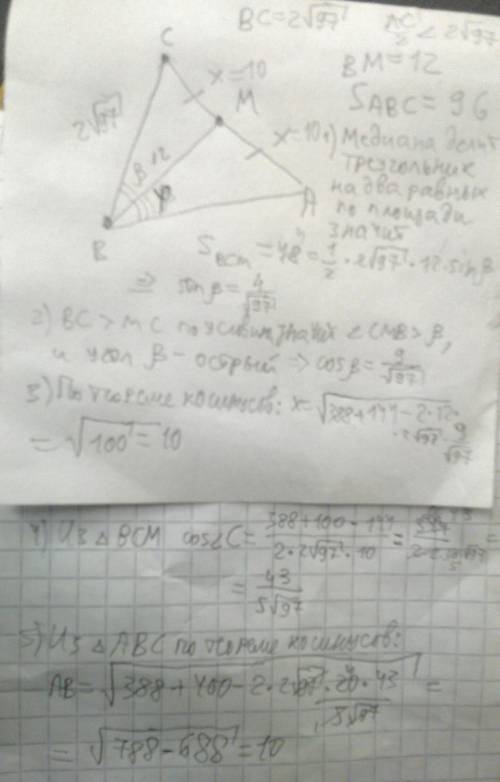 BC=2√97 AC/2 < 2√97
BM=12
S ABC = 96
C
x=10
M
2√97
β 12
x=10
A
B
1) Медиана делит
треугольник
на два равных
по площади
значит
S BCM = 48 = 1/2 · 2√97 · 12 · sin β
⇒ sin β = 4/√97
2) BC > MC по условию, значит ∠CMB > β,
и угол β - острый ⇒ cos β = 9/√97
3) По теореме косинусов: x = √(388+144-2·12·2√97·9/√97)
= √100 = 10
4) Из △BCM cos∠C = (388+100-144)/(2·2√97·10) =
= 43/(5√97)
5) Из △ABC по теореме косинусов:
AB = √(388+400-2·2√97·20·43/(5√97)) =
= √(788-688) = 10